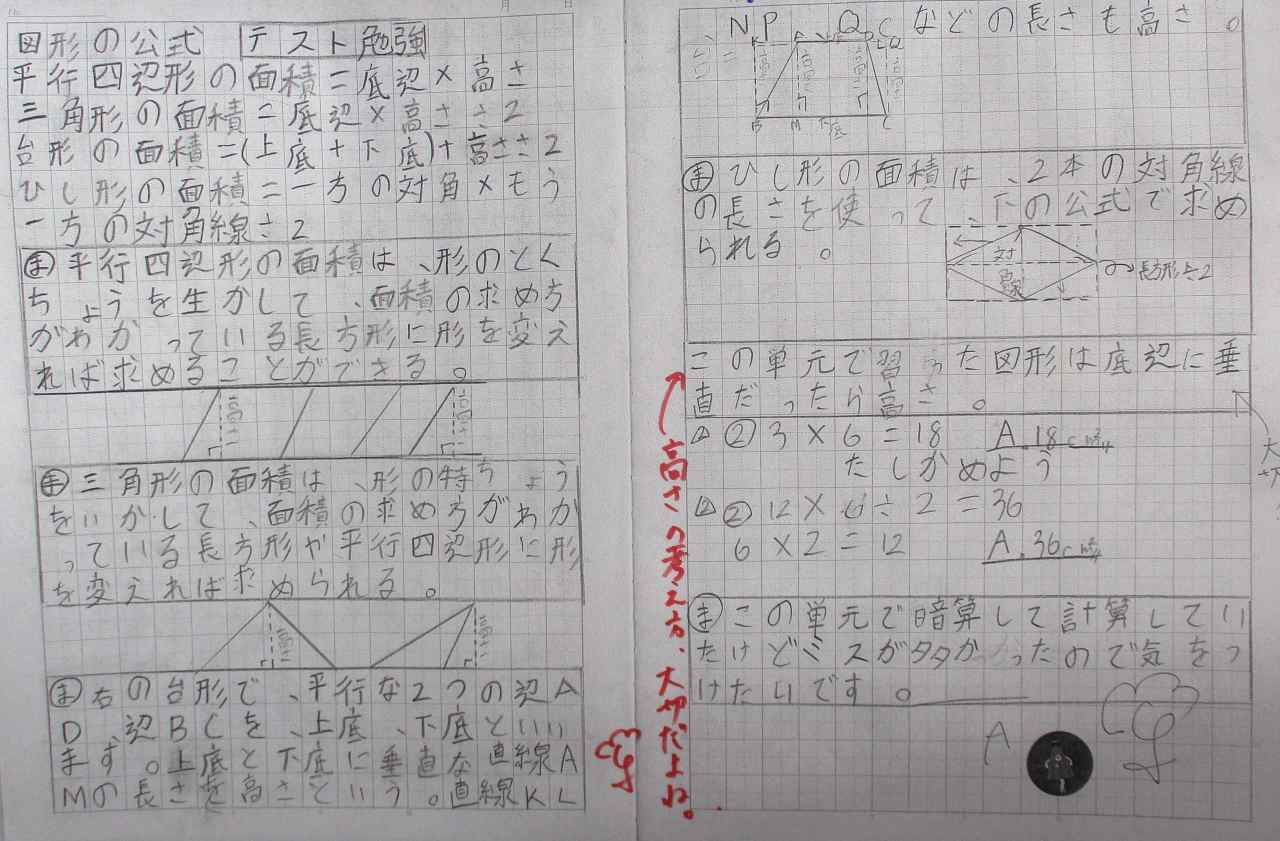 図形の公式 テスト勉強
平行四辺形の面積=底辺×高さ
三角形の面積=底辺×高さ÷2
台形の面積=(上底+下底)+高さ÷2
ひし形の面積=一方の対角×もう
一方の対角線÷2
ま 平行四辺形の面積は、形のとく
ちょうを生かして、面積の求め方
がわかっている長方形に形を変え
れば求めることができる。
高さ 高さ
ま 三角形の面積は、形の特ちょう
をいかして、面積の求め方がわか
っている長方形や平行四辺形に形
を変えれば求められる。
高さ 高さ
ま 右の台形で、平行な2つの辺A
D、辺BCを、上底、下底といい
ます。上底と下底に垂直な直線A
Mの長さを高さという。直線KL
NP Q などの長さも高さ。
高さ 高さ 高さ 高さ
B M 下底 C
ま ひし形の面積は、2本の対角線
の長さを使って、下の公式で求め
られる。
対
長方形÷2
この単元で習った図形は底辺に垂
直だったら高さ。
大切
② 3×6=18 A.18cm²
たしかめよう
② 12×6÷2=36
6×2=12 A.36cm²
ま この単元で暗算して計算してい
たけどミスがタタかったので気をつ
けたいです。
A
高さの考え方、大切だよね。